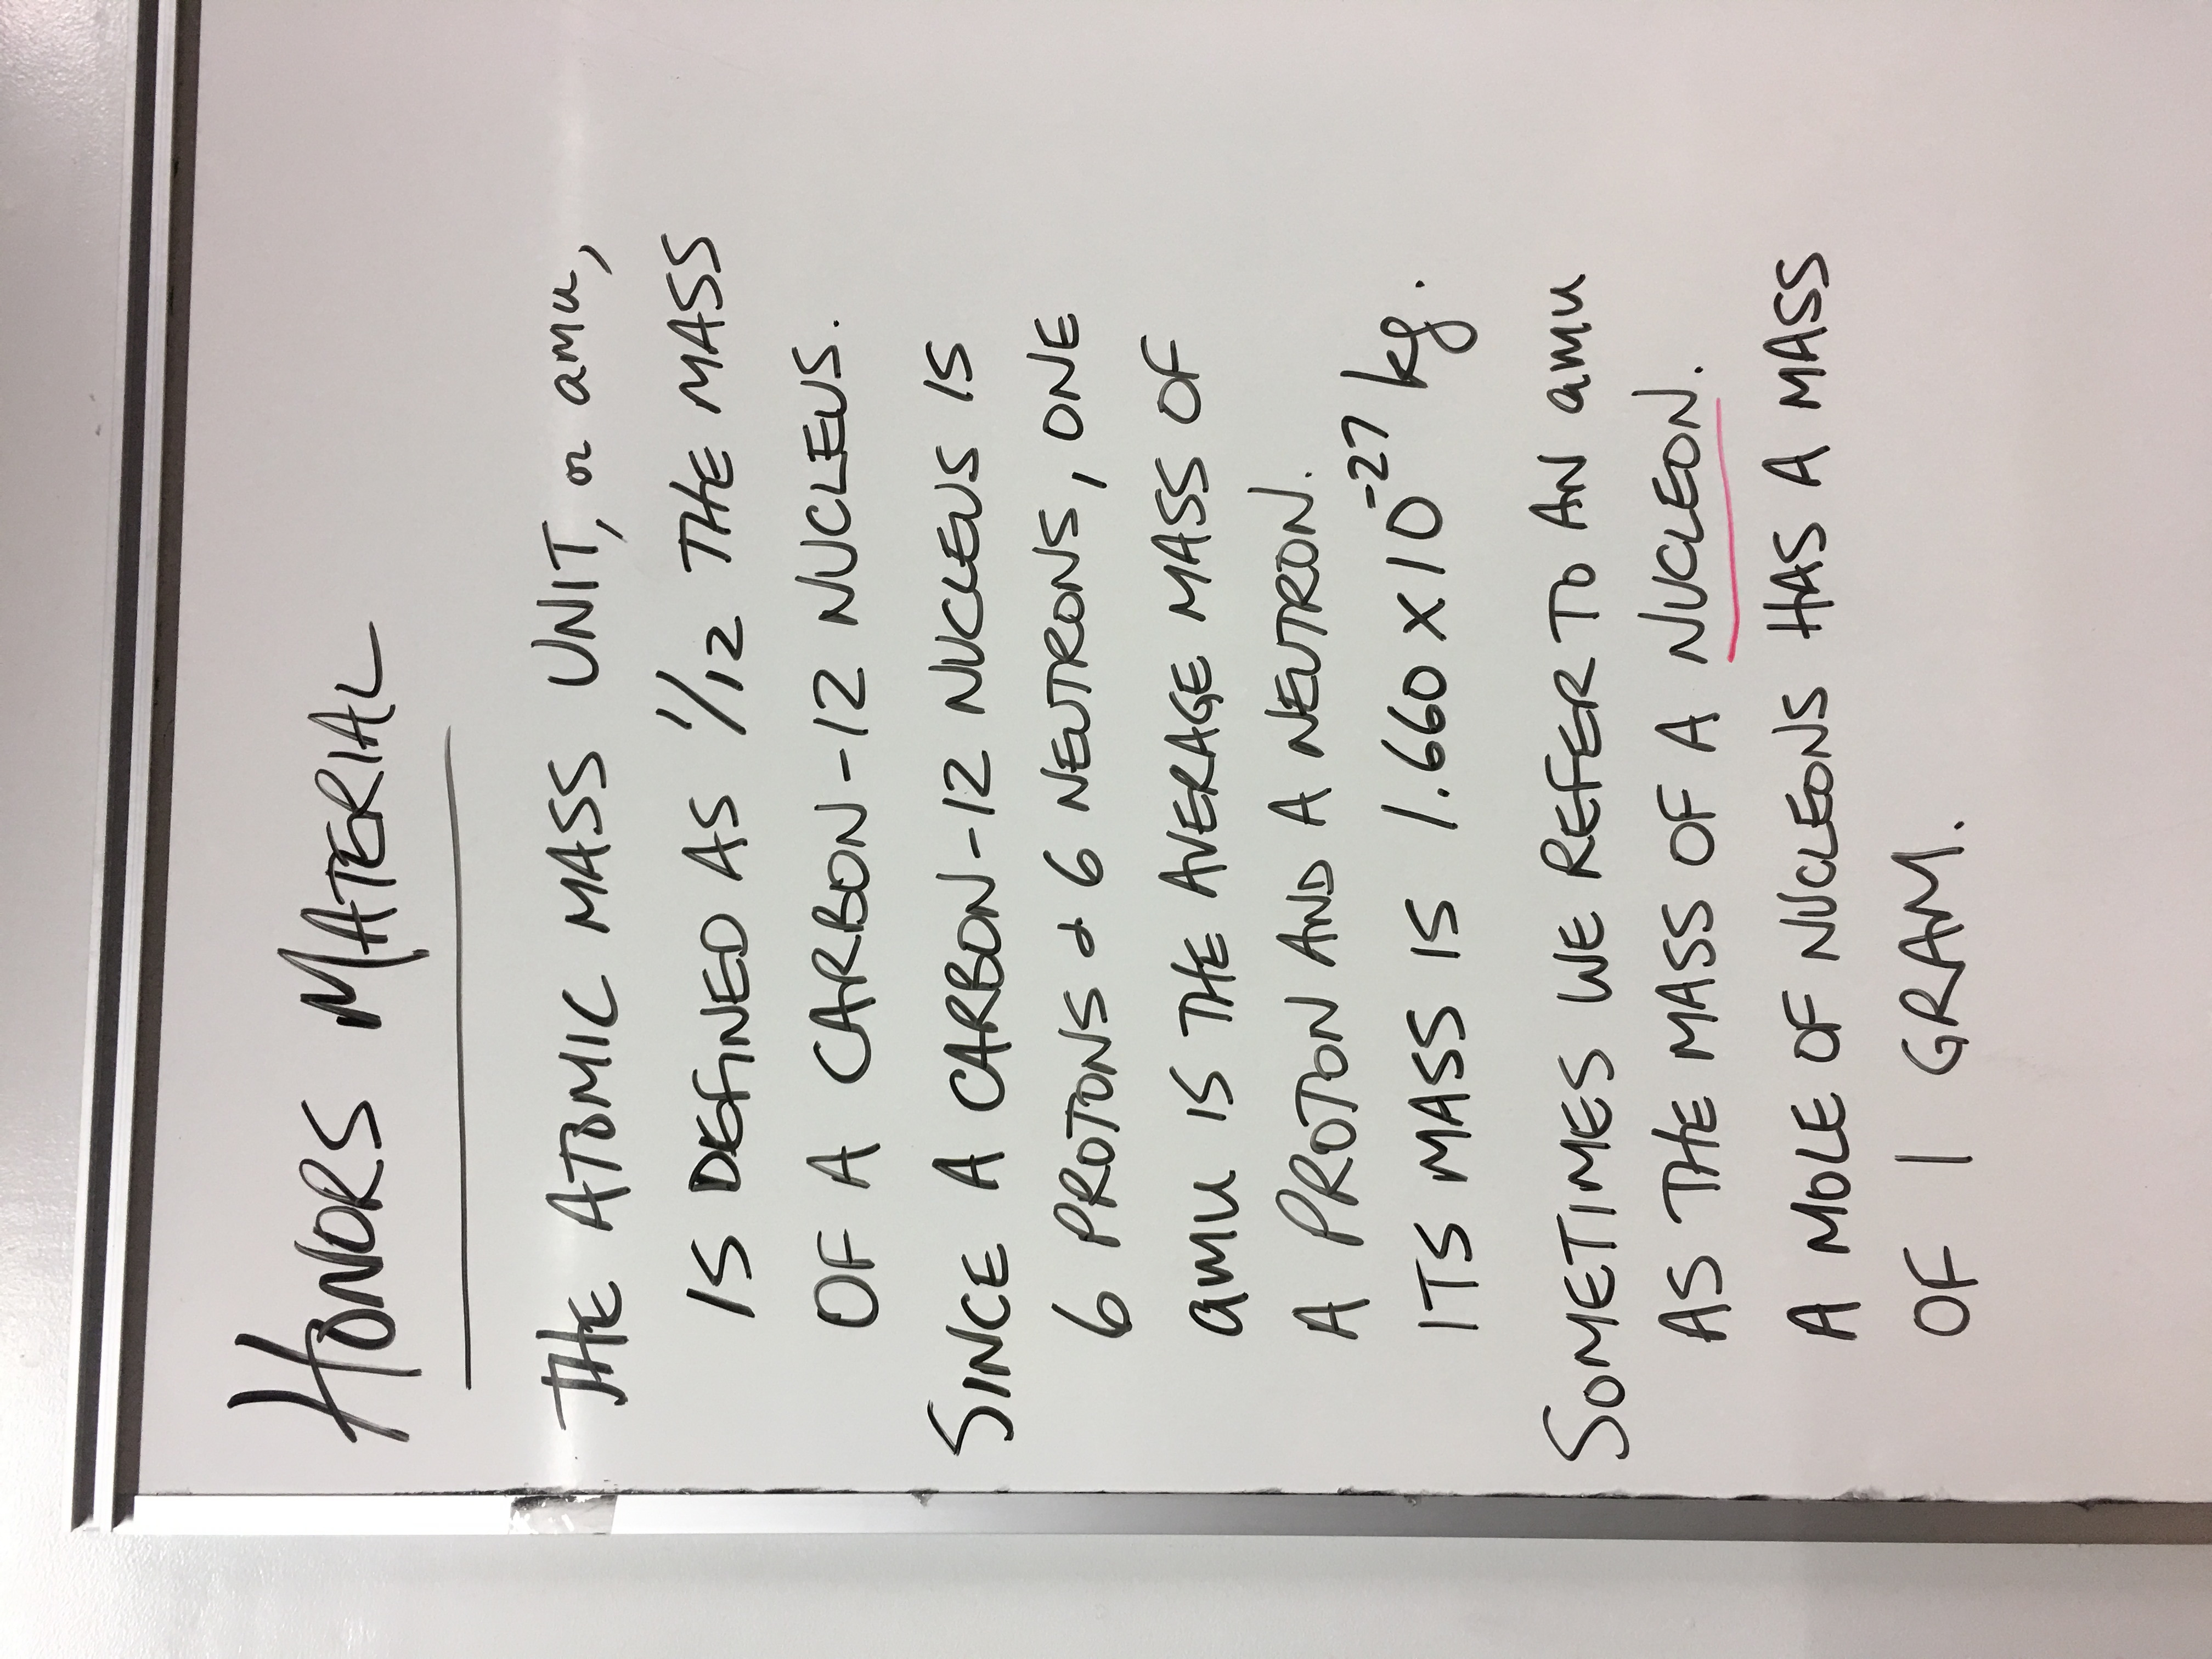 HONORS MATERIAL
THE ATOMIC MASS UNIT, or amu,
IS DEFINED AS 1/12 THE MASS
OF A CARBON-12 NUCLEUS.
SINCE A CARBON-12 NUCLEUS IS
6 PROTONS & 6 NEUTRONS, ONE
amu IS THE AVERAGE MASS OF
A PROTON AND A NEUTRON.
ITS MASS IS 1.660 x 10⁻²⁷ kg.
SOMETIMES WE REFER TO AN amu
AS THE MASS OF A NUCLEON.
A MOLE OF NUCLEONS HAS A MASS
OF 1 GRAM.